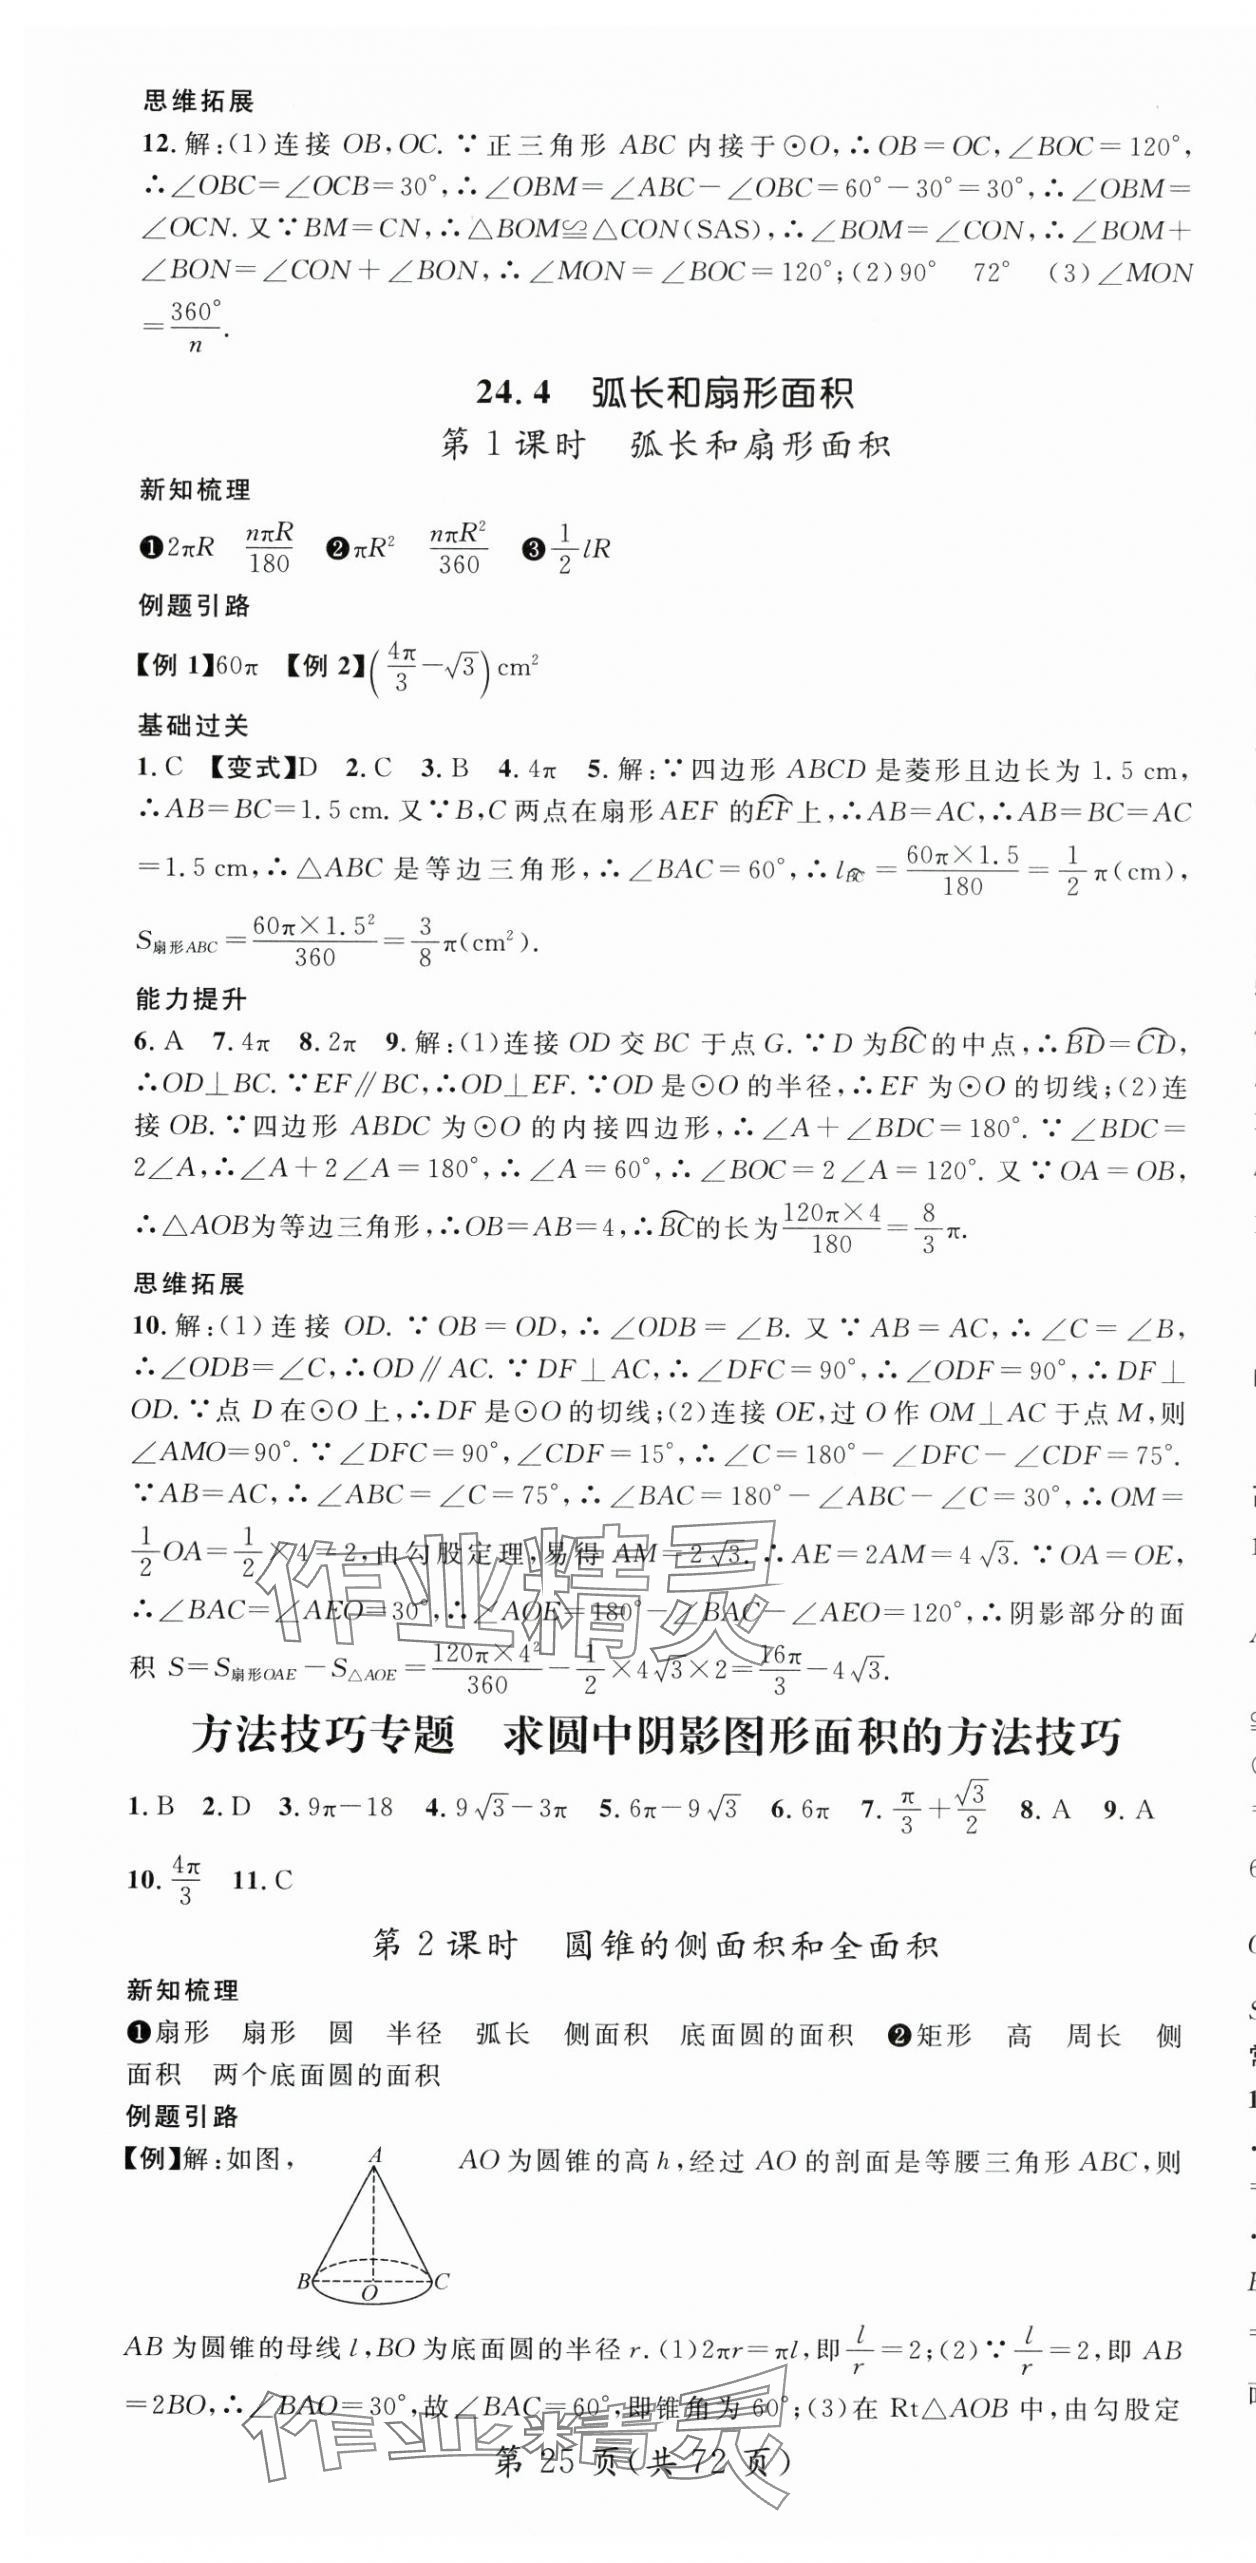 思维拓展
12.解:(1)连接 OB,OC.∵正三角形 ABC 内接于⊙O,∴OB=OC,∠BOC=120°,
∴∠OBC=∠OCB=30°,∴∠OBM=∠ABC-∠OBC=60°-30°=30°,∴∠OBM=
∠OCN.又∵BM=CN,∴△BOM≌△CON(SAS),∴∠BOM=∠CON,∴∠BOM+
∠BON=∠CON+∠BON,∴∠MON=∠BOC=120°;(2)90° 72° (3)∠MON
=360°/n.
24.4 弧长和扇形面积
第1课时 弧长和扇形面积
新知梳理
❶2πR nπR/180 ❷πR² nπR²/360 ❸1/2 lR
例题引路
【例1】60π 【例2】(4π/3-√3)cm²
基础过关
1.C 【变式】D 2.C 3.B 4.4π 5.解:∵四边形 ABCD 是菱形且边长为 1.5 cm,
∴AB=BC=1.5 cm.又∵B,C 两点在扇形 AEF 的⌒EF上,∴AB=AC,∴AB=BC=AC
=1.5 cm,∴△ABC 是等边三角形,∴∠BAC=60°,∴l⌒BC=60π×1.5/180=1/2π(cm),
S扇形ABC=60π×1.5²/360=3/8π(cm²).
能力提升
6.A 7.4π 8.2π 9.解:(1)连接 OD 交 BC 于点 G.∵D 为⌒BC的中点,∴⌒BD=⌒CD,
∴OD⊥BC.∵EF∥BC,∴OD⊥EF.∵OD 是⊙O 的半径,∴EF 为⊙O 的切线;(2)连
接 OB.∵四边形 ABDC 为⊙O 的内接四边形,∴∠A+∠BDC=180°.∵∠BDC=
2∠A,∴∠A+2∠A=180°,∴∠A=60°,∴∠BOC=2∠A=120°.又∵OA=OB,
∴△AOB为等边三角形,∴OB=AB=4,∴⌒BC的长为120π×4/180=8/3π.
思维拓展
10.解:(1)连接 OD.∵OB=OD,∴∠ODB=∠B.又∵AB=AC,∴∠C=∠B,
∴∠ODB=∠C,∴OD∥AC.∵DF⊥AC,∴∠DFC=90°,∴∠ODF=90°,∴DF⊥
OD.∵点 D 在⊙O 上,∴DF 是⊙O 的切线;(2)连接 OE,过 O 作 OM⊥AC 于点 M,则
∠AMO=90°.∵∠DFC=90°,∠CDF=15°,∴∠C=180°-∠DFC-∠CDF=75°.
∵AB=AC,∴∠ABC=∠C=75°,∴∠BAC=180°-∠ABC-∠C=30°,∴OM=
1/2OA=1/2×4=2,由勾股定理,易得 AM=2√3.∴AE=2AM=4√3.∵OA=OE,
∴∠BAC=∠AEO=30°,∴∠AOE=180°-∠BAC-∠AEO=120°,∴阴影部分的面
积 S=S扇形OAE-S△AOE=120π×4²/360-1/2×4√3×2=16π/3-4√3.
方法技巧专题 求圆中阴影图形面积的方法技巧
1.B 2.D 3.9π-18 4.9√3-3π 5.6π-9√3 6.6π 7.π/3+√3/2 8.A 9.A
10.4π/3 11.C
第2课时 圆锥的侧面积和全面积
新知梳理
❶扇形 扇形 圆 半径 弧长 侧面积 底面圆的面积 ❷矩形 高 周长 侧
面积 两个底面圆的面积
例题引路
【例】解:如图, A B O C AO 为圆锥的高 h,经过 AO 的剖面是等腰三角形 ABC,则
AB 为圆锥的母线 l,BO 为底面圆的半径 r.(1)2πr=πl,即l/r=2;(2)∵l/r=2,即 AB
=2BO,∴∠BAO=30°,故∠BAC=60°,即锥角为 60°;(3)在 Rt△AOB 中,由勾股定
第 25 页(共 72 页)
作业精灵
作业精灵